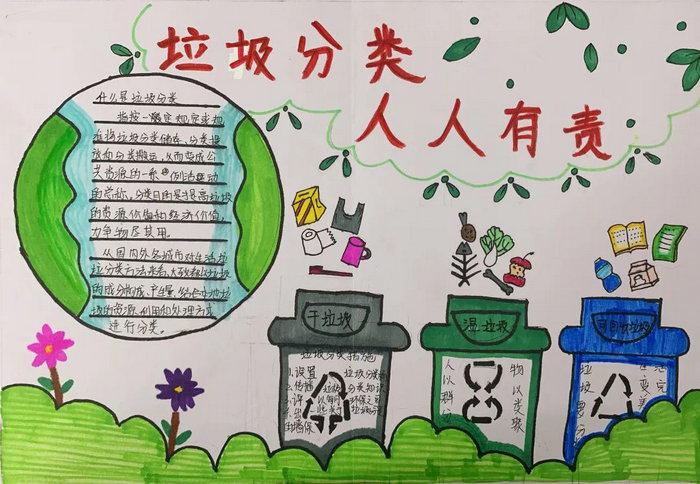 垃圾分类
人人有责
什么是垃圾分类
指按一定规定或规
准将垃圾分类储存、分类投
放和分类搬运，从而变成公
共资源的一系列活动
的总称，分类目的是提高垃圾
的资源价值和经济价值，
力争物尽其用。
从国内外各城市对生活垃
圾分类方法来看，大致都以垃圾
的成分构成、产生量、结合本地垃
圾的资源利用和处理方式
进行分类。
干垃圾
垃圾分类措施
湿垃圾
人以群分
物以类聚
可回收垃圾